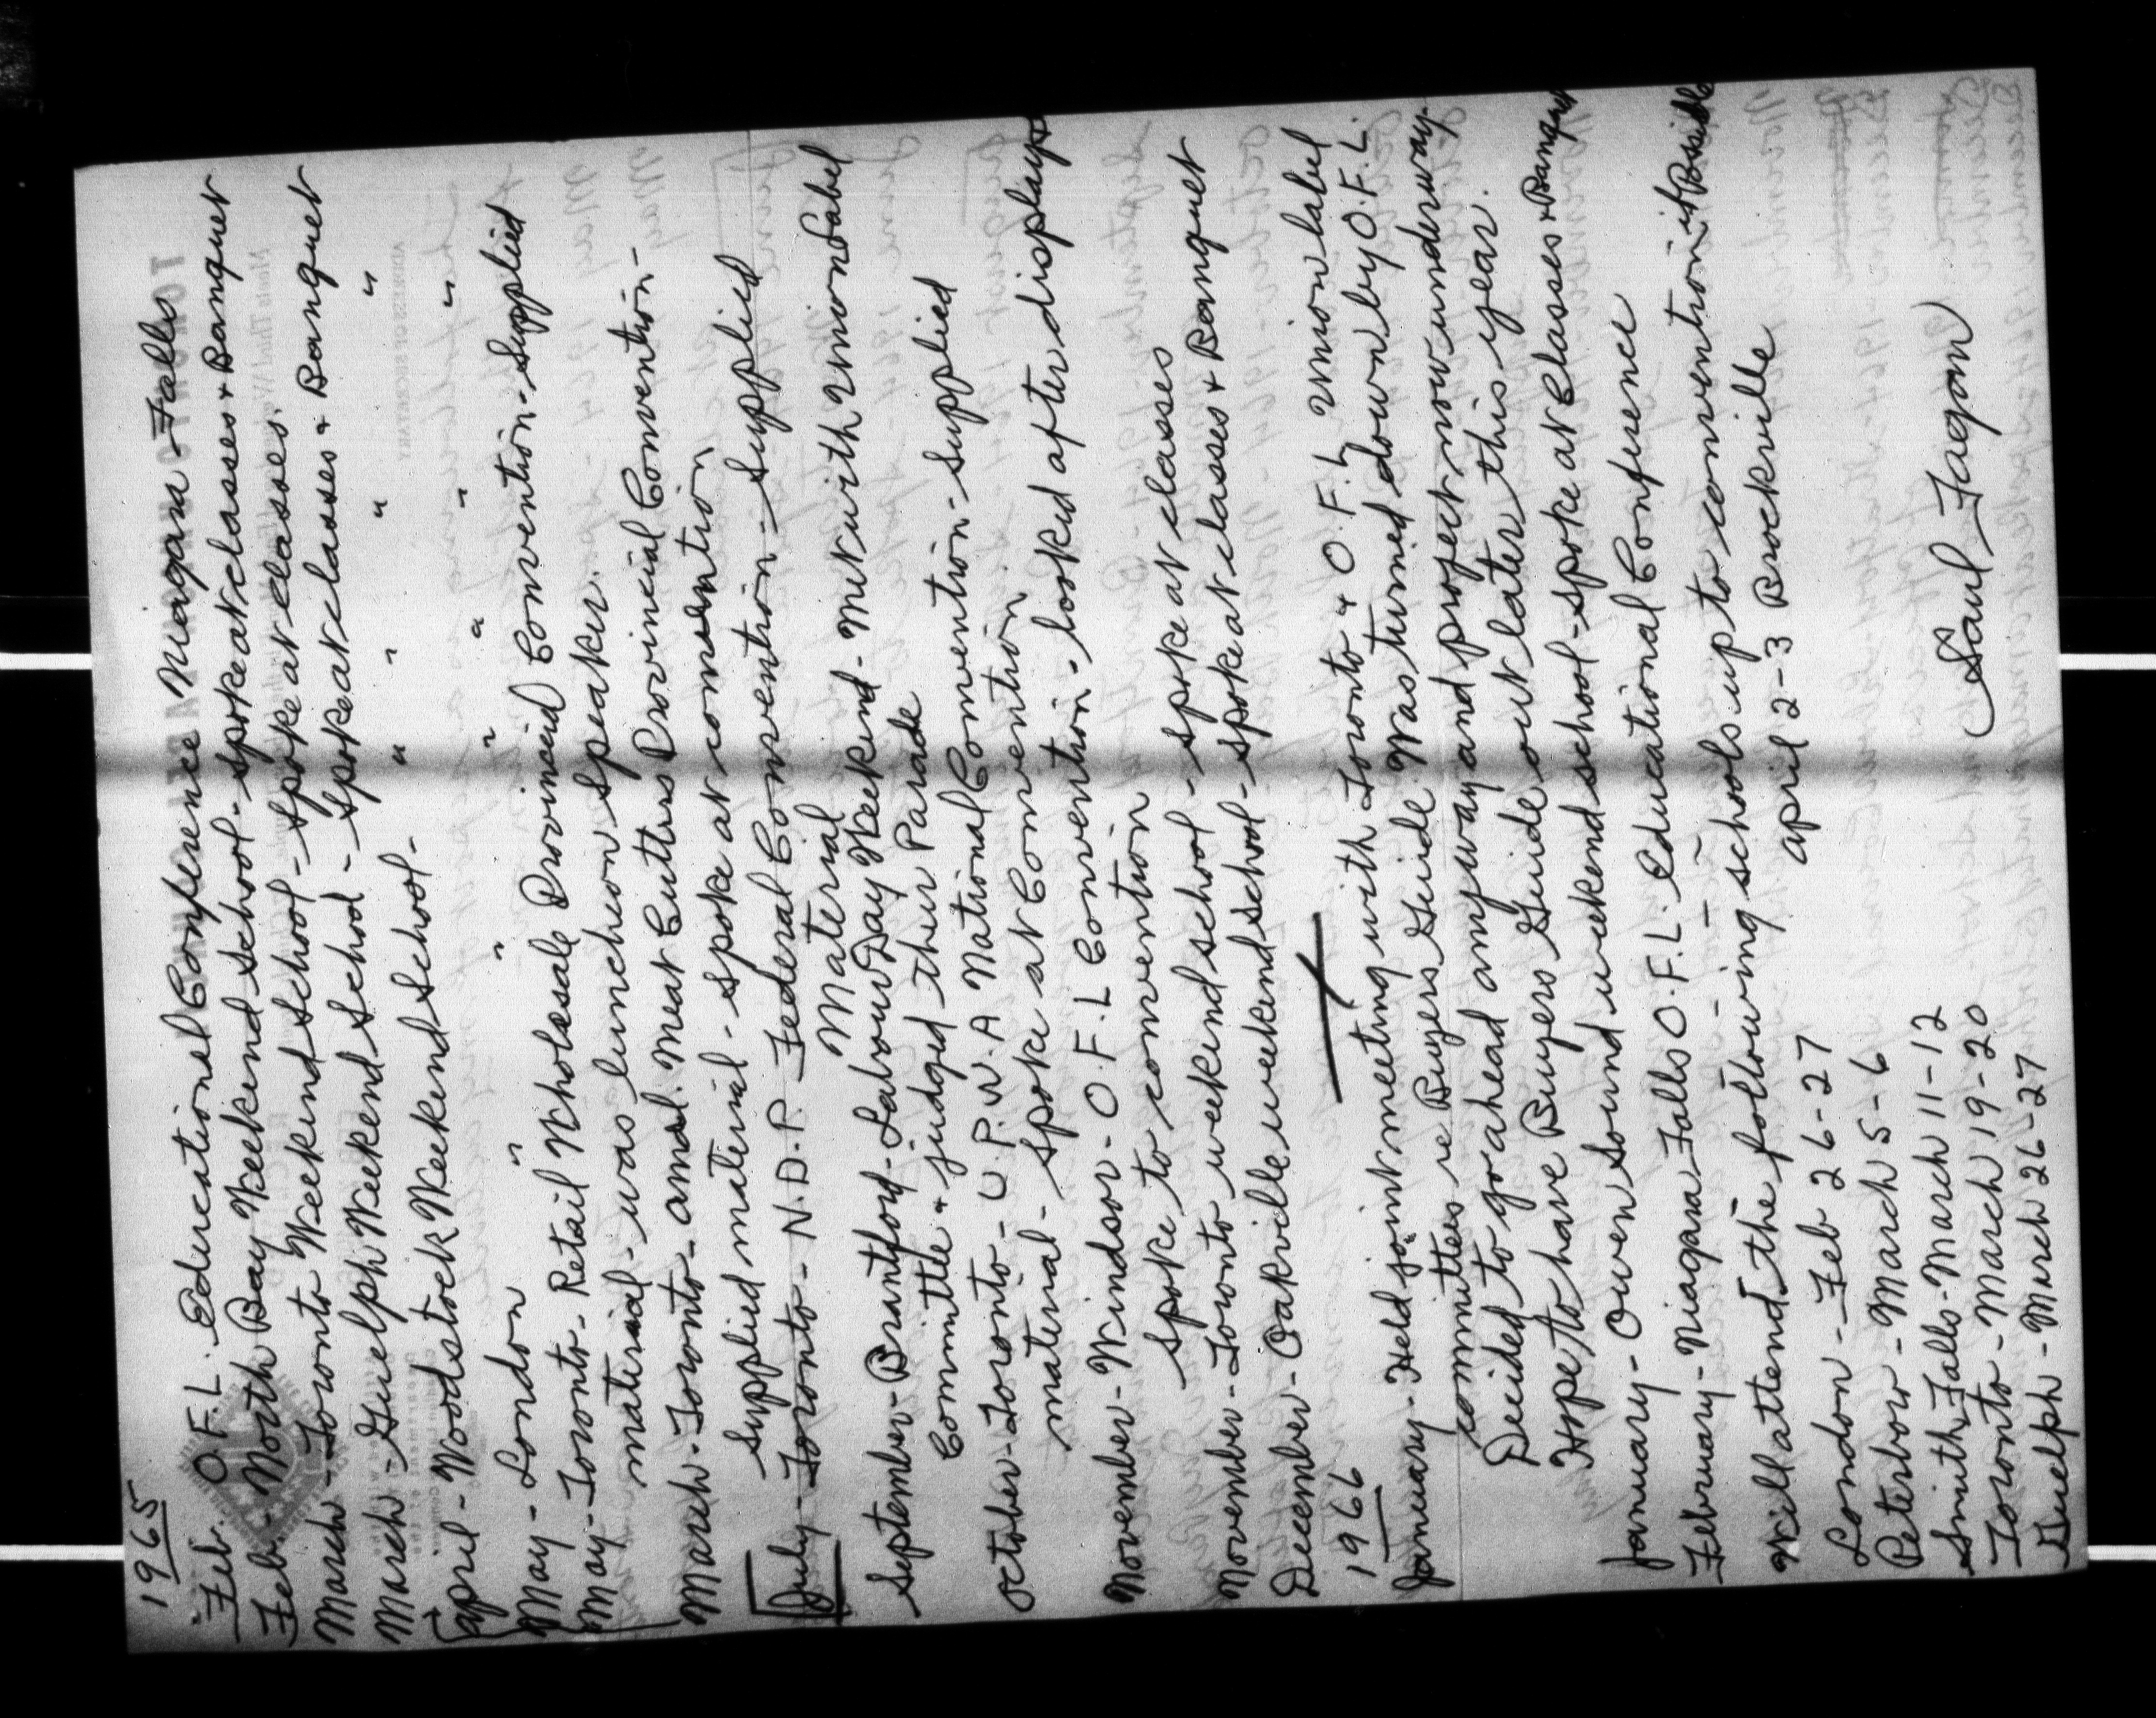 1965
Feb. O.F.L. Educational Conference Niagara Falls
Feb. - North Bay Weekend School - Spoke at classes + Banquet
March - Toronto Weekend School - Spoke at classes.
March - Guelph Weekend School - Spoke at classes + Banquet
April - Woodstock Weekend School - " " " "
May - London " " " " " "
May - Toronto - Retail Wholesale Provincial Convention - Supplied
material - was luncheon speaker.
March - Toronto - Amal. Meat Cutters Provincial Convention -
Supplied material - spoke at convention
July - Toronto - N.D.P. Federal Convention - Supplied
Material
September - Brantford - Labour Day Weekend - Met with Union Label
Committee + judged their Parade
October - Toronto - U.P.W.A National Convention - supplied
material - spoke at Convention
November - Windsor - O.F.L Convention - looked after display +
spoke to convention
November - Toronto weekend school - spoke at classes
December - Oakville weekend school - spoke at classes + Banquet
1966
January - Held joint meeting with Toronto + O.F.L Union label
committees re Buyers Guide. Was turned down by O.F.L.
Decided to go ahead anyway and project now underway.
Hope to have Buyers Guide out later this year.
January - Owen Sound weekend school - spoke at Classes + Banquet
February - Niagara Falls O.F.L. Educational Conference
Will attend the following schools up to convention if Possible
London - Feb 26-27 April 2-3 Brockville
Peterboro - March 5-6
Smith Falls - March 11-12
Toronto - March 19-20
Guelph - March 26-27
Saul Fagan